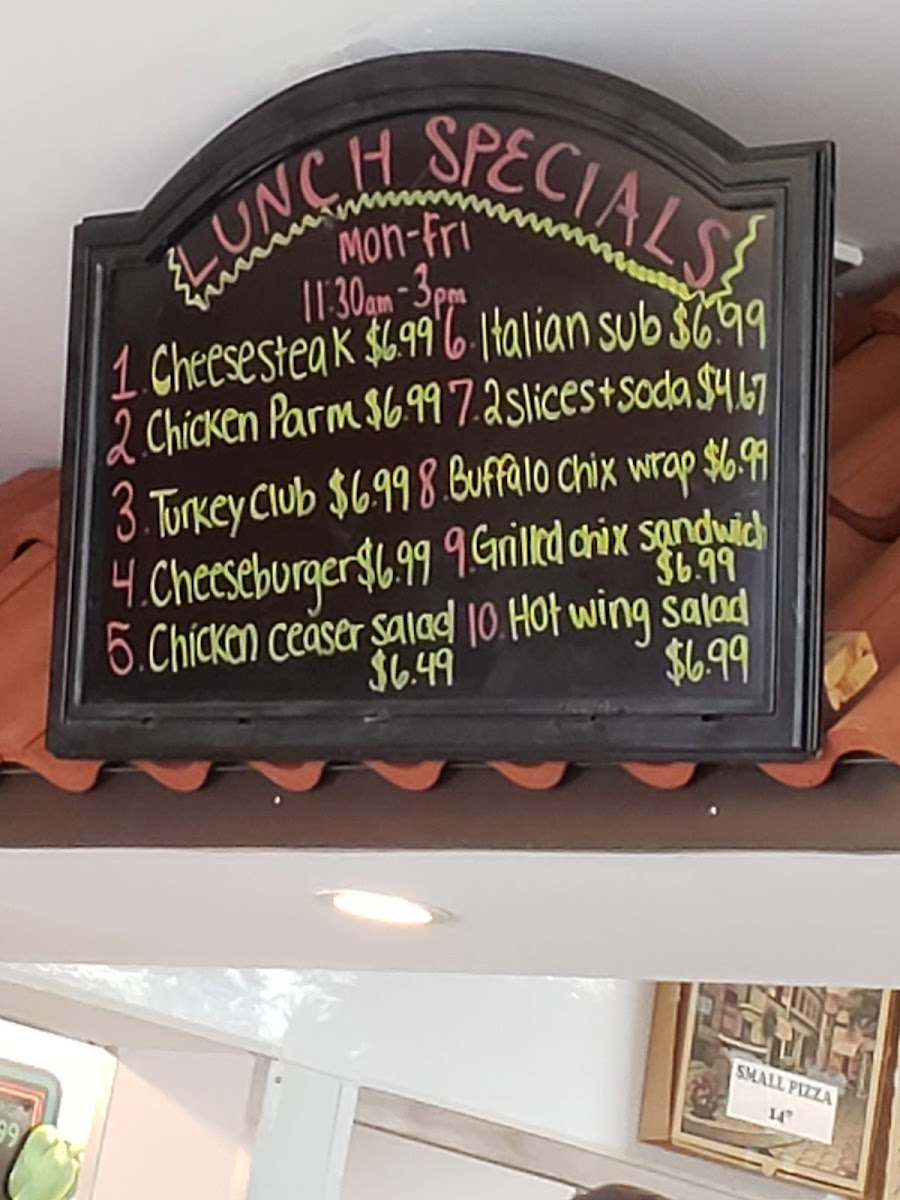 LUNCH SPECIALS
Mon-Fri
11:30am - 3pm
1. Cheesesteak $6.99
2. Chicken Parm $6.99
3. Turkey Club $6.99
4. Cheeseburger $6.99
5. Chicken ceaser salad
$6.49
6. Italian sub $6.99
7. 2 slices + soda $4.67
8. Buffalo chix wrap $6.99
9. Grilled chix sandwich
$6.99
10. Hot wing salad
$6.99
SMALL PIZZA
14"
99